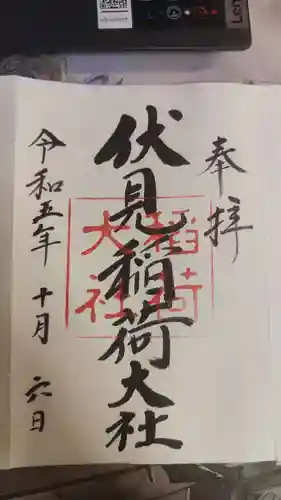 奉拝
伏見稲荷大社
稲荷
大社
令和五年十月六日
Len